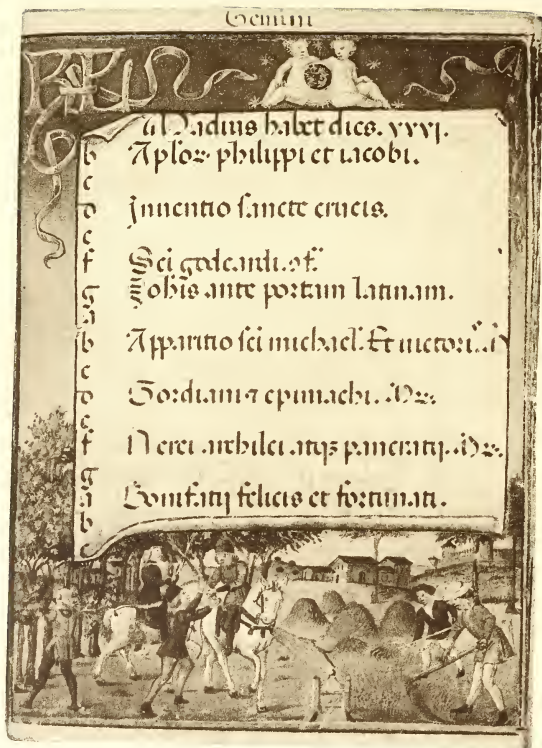 Gemini
Madius habet dies. xxxj.
b Aploꝝ philippi et iacobi.
c
d Inuentio sancte crucis.
e
f Sci godeardi. 
g Iohis ante portam latinam.
a
b Apparitio sci michael. Et uictori.
c
d Gordiani ⁊ epimachi. Mr.
e
f Nerei archilei atqꝫ pancratij. Mr.
g
a Bonifatij felicis et fortunati.
b